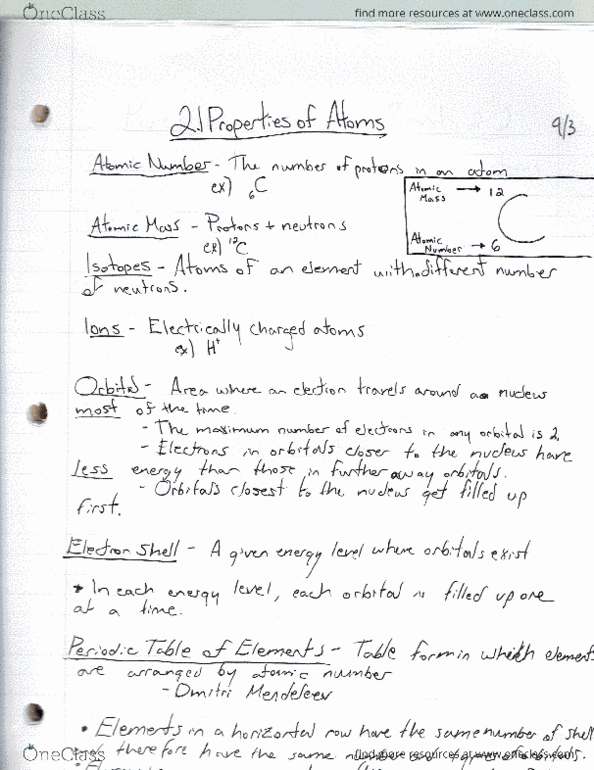 OneClass find more resources at www.oneclass.com
2.1 Properties of Atoms 9/3
Atomic Number - The number of protons in an atom
ex) 6C
Atomic Mass → 12
C
Atomic Number → 6
Atomic Mass - Protons + neutrons
ex) 12C
Isotopes - Atoms of an element with different number
of neutrons.
Ions - Electrically charged atoms
ex) H+
Orbital - Area where an election travels around a nucleus
most of the time.
- The maximum number of electrons in any orbital is 2.
- Electrons in orbitals closer to the nucleus have
less energy than those in further away orbitals.
- Orbitals closest to the nucleus get filled up
first.
Electron Shell - A given energy level where orbitals exist
* In each energy level, each orbital is filled up one
at a time.
Periodic Table of Elements - Table form in which elements
are arranged by atomic number
- Dmitri Mendeleev
• Elements in a horizontal row have the same number of shell
OneClass find more resources at www.oneclass.com
& therefore have the same